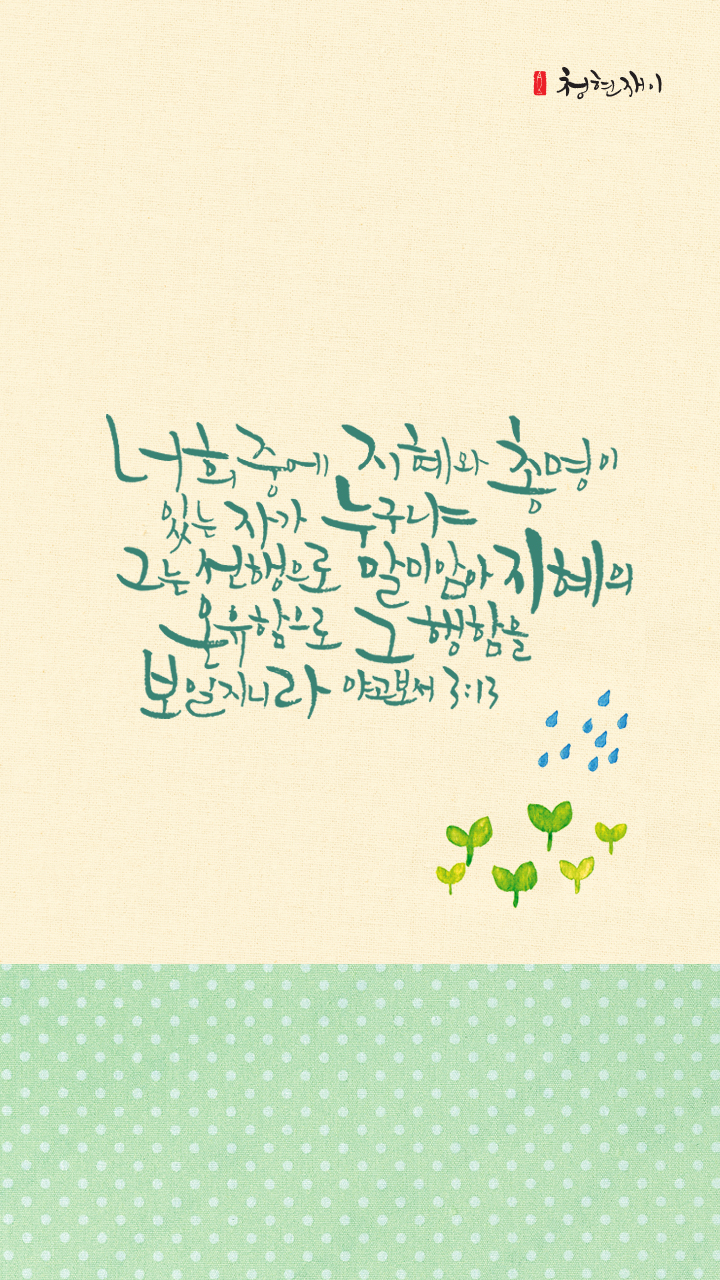 청현재이
너희 중에 지혜와 총명이
있는 자가 누구냐
그는 선행으로 말미암아 지혜의
온유함으로 그 행함을
보일지니라 야고보서 3:13